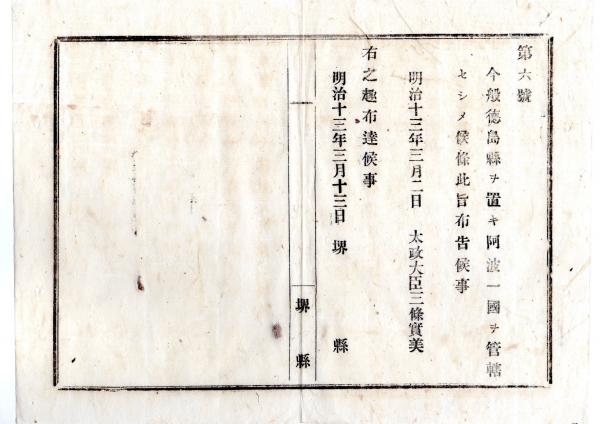 第六號
今般德島縣ヲ置キ阿波一國ヲ管轄
セシメ候條此旨布告候事
明治十三年三月二日 太政大臣三條實美
右之趣布達候事
明治十三年三月十三日 堺縣
堺縣